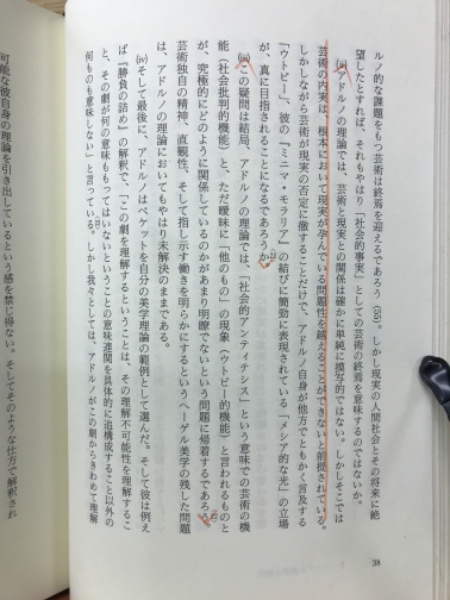 ルノ的な課題をもつ芸術は終焉を迎えるであろう(55)。しかし現実の人間社会とその将来に絶
望したとすれば、それもやはり「社会的事実」としての芸術の終焉を意味するのではないか。
(ii)アドルノの理論では、芸術と現実との関係は確かに単純に模写的ではない。しかしそこでは
芸術の内実は、根本において現実が孕んでいる問題性を越えることができないと前提されている。
しかしながら芸術が現実の否定に徹することだけで、アドルノ自身が他方でともかく言及する
「ウトピー」、彼の『ミニマ・モラリア』の結びに簡勁に表現されている「メシア的な光」の立場
が、真に目指されることになるであろうか。
(iii)この疑問は結局、アドルノの理論では、「社会的アンティテシス」という意味での芸術の機
能(社会批判的機能)と、ただ曖昧に「他のもの」の現象(ウトピー的機能)と言われるものと
が、究極的にどのように関係しているのかがあまり明瞭でないという問題に帰着するであろう。
芸術独自の精神、直観性、そして指し示す働きを明らかにするというヘーゲル美学の残した問題
は、アドルノの理論においてもやはり未解決のままである。
(iv)そして最後に、アドルノはベケットを自分の美学理論の範例として選んだ。そして彼は例え
ば『勝負の詰め』の解釈で、「この劇を理解するということは、その理解不可能性を理解するこ
と、その劇が何の意味ももってはいないということの意味連関を具体的に追構成すること以外の
何ものも意味しない」と言っている。しかし我々としては、アドルノがこの劇からきわめて理解
可能な彼自身の理論を引き出しているという感を禁じ得ない。そしてそのような仕方で解釈され
38